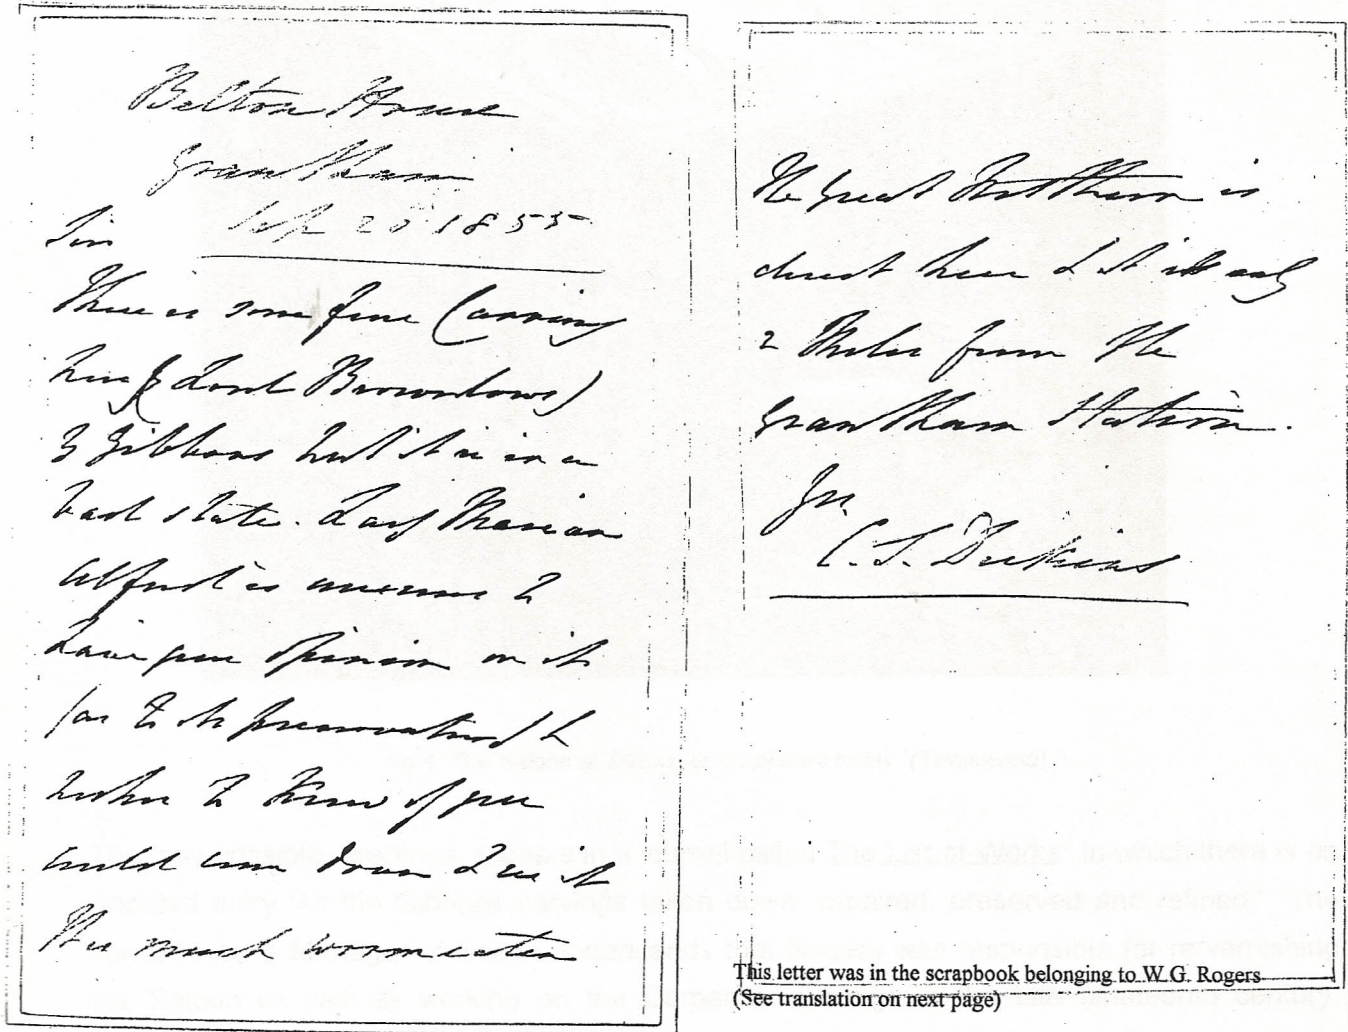 Belton House
Grantham
28 1855
Sir
There is some fine Carving
here (Lord Brownlows)
by Gibbons but it is in a
bad state. Lady Marian
Alford is anxious to
have your opinion on it
as to its preservation &
wishes to know if you
could come down & see it
It is much wormeaten
The Great Northern is
direct here & it is only
2 Miles from the
Grantham Station.
C. S. Dickins
This letter was in the scrapbook belonging to W.G. Rogers
(See translation on next page)